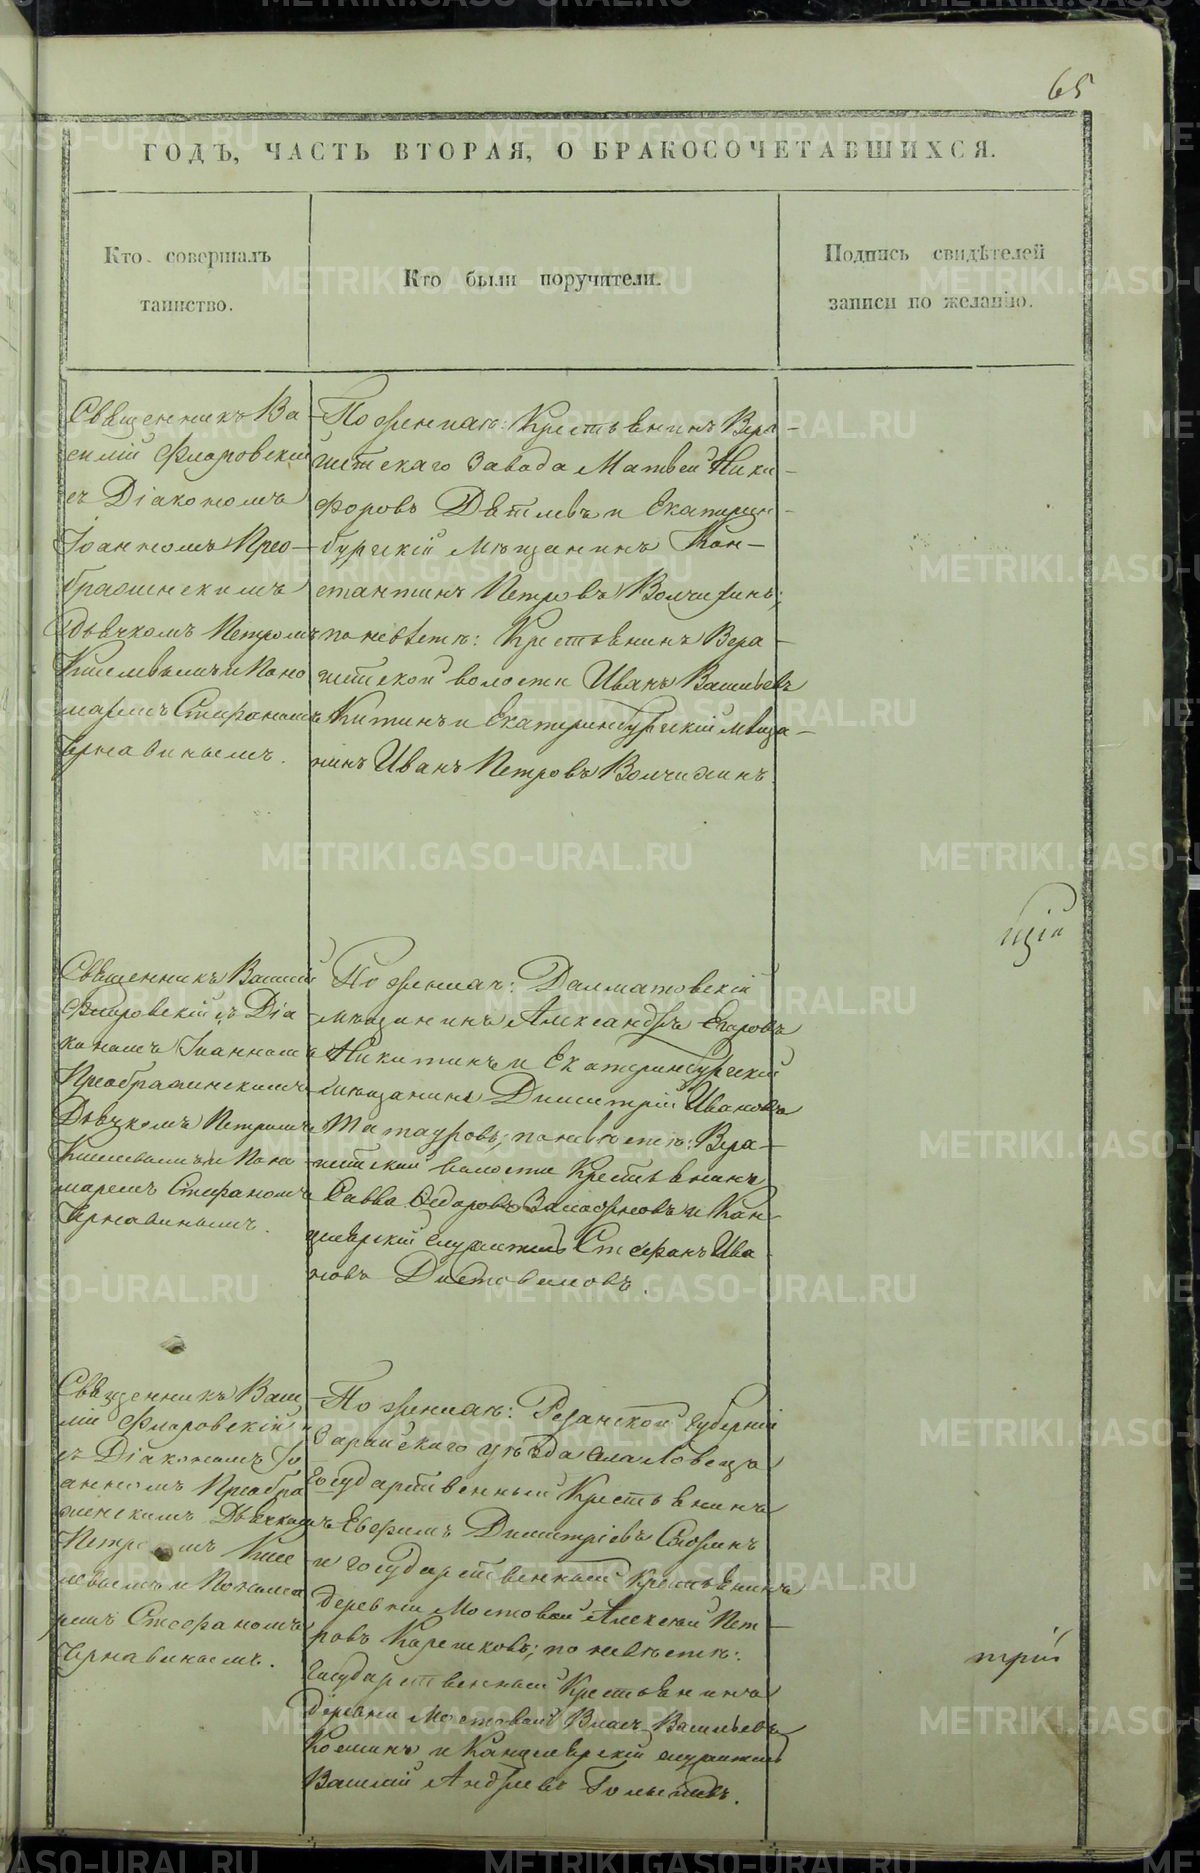 65
ГОДЪ, ЧАСТЬ ВТОРАЯ, О БРАКОСОЧЕТАВШИХСЯ.
Кто совершалъ
таинство.
Кто были поручители.
Подпись свидѣтелей
записи по желанію.
Священникъ Ва-
силій Флоровскій
съ Діакономъ
Іоанномъ Прео-
браженскимъ
дьячкомъ Петромъ
Киселевымъ и Поно
маремъ Стефаномъ
Чернавинымъ.
По женихѣ: Крестьянинъ Верх-
Исетскаго Завода Матвей Ники-
форовъ Дѣтлевъ и Екатерин-
бургскій Мѣщанинъ Кон-
стантинъ Петровъ Волчихинъ;
по невѣстѣ: Крестьянинъ Верх-
исетской волости Иванъ Васильевъ
Китинъ и Екатеринбургскій мѣща-
нинъ Иванъ Петровъ Волчихинъ.
щій
Священникъ Василій
Флоровскій съ Діа
кономъ Іоанномъ
Преображенскимъ
Дьячкомъ Петромъ
Киселевымъ и Поно
маремъ Стефаномъ
Чернавинымъ.
По женихѣ: Далматовскій
мѣщанинъ Александръ Егоровъ
Никитинъ и Екатеринбургскій
мѣщанинъ Димитрій Ивановъ
Татауровъ; по невѣстѣ: Верх-
исетской волости Крестьянинъ
Савва Федоровъ и Кан-
целярскій служитель Стефанъ Ива
новъ
Священникъ Васи
лій Флоровскій
съ Діакономъ Іо
анномъ Преобра
женскимъ Дьячком
Петромъ Кисе
левымъ и Понома
ремъ Стефаномъ
Чернавинымъ.
По женихѣ: Рязанской Губерніи
Зарайскаго уѣзда села Ловецъ
Государственный Крестьянинъ
Евфимъ Димитріевъ
и государственный Крестьянинъ
деревни Мостовой Алексѣй Пет-
ровъ Карешковъ; по невѣстѣ:
Государственный Крестьянинъ
Деревни Мостовой Власъ Васильевъ
Кошинъ и Канцелярскій служитель
Василій Андреевъ
трій